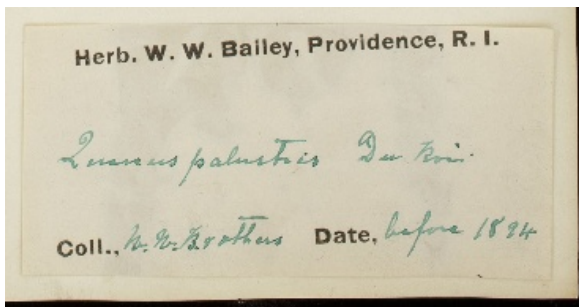 Herb. W. W. Bailey, Providence, R. I.
Quercus palustris Du Roi.
Coll., W. W. Brothers Date, before 1894